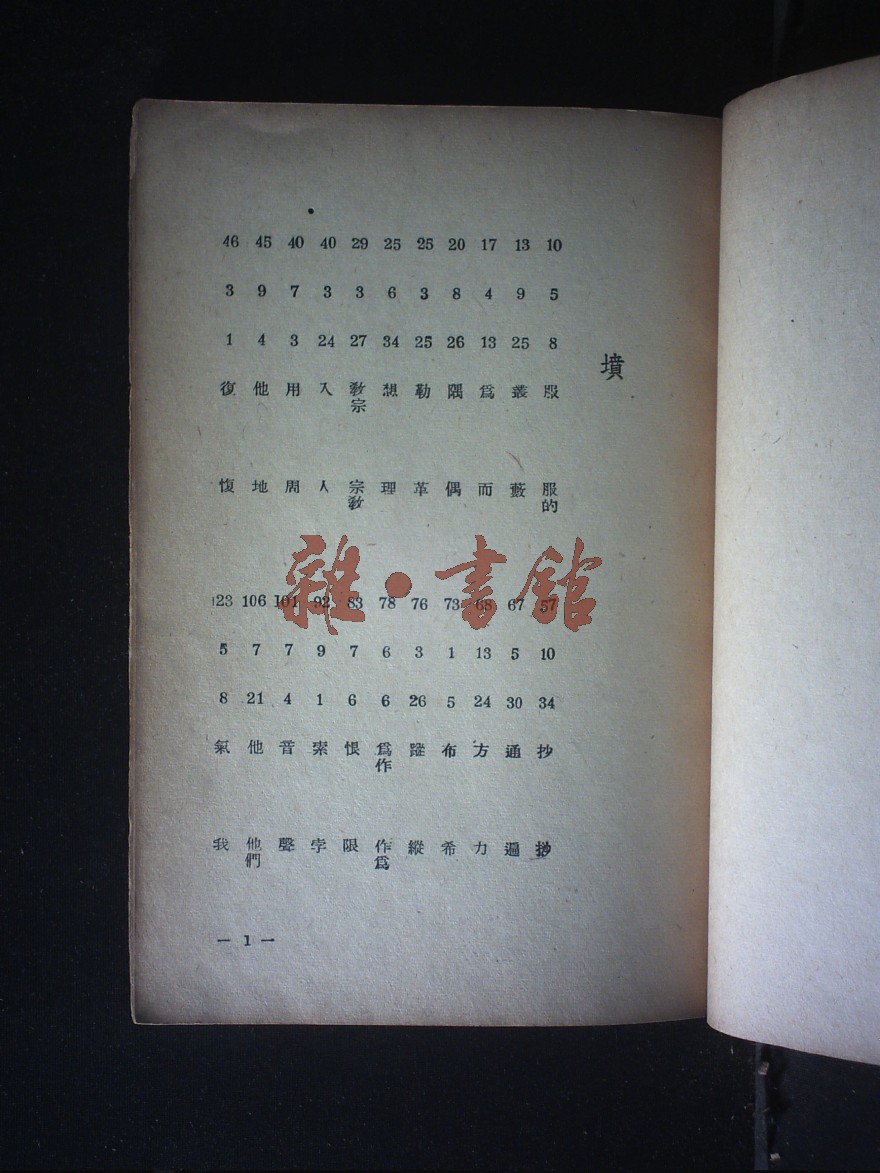 墳
10 5 8 服 服的
13 9 25 叢 藪
17 4 13 爲 而
20 8 26 隅 偶
25 3 25 勒 革
25 6 34 想 理
29 3 27 教宗 宗教
40 3 24 入 人
40 7 3 用 周
45 9 4 他 地
46 3 1 復 愎
57 10 34 抄
67 5 30 通 遍
68 13 24 方 力
73 1 5 布 希
76 3 26 縱
78 6 6 爲作 作爲
83 7 6 恨 限
92 9 1 索 孛
101 7 4 音 聲
106 7 21 他 他們
123 5 8 氣 我
— 1 —
雜·書館